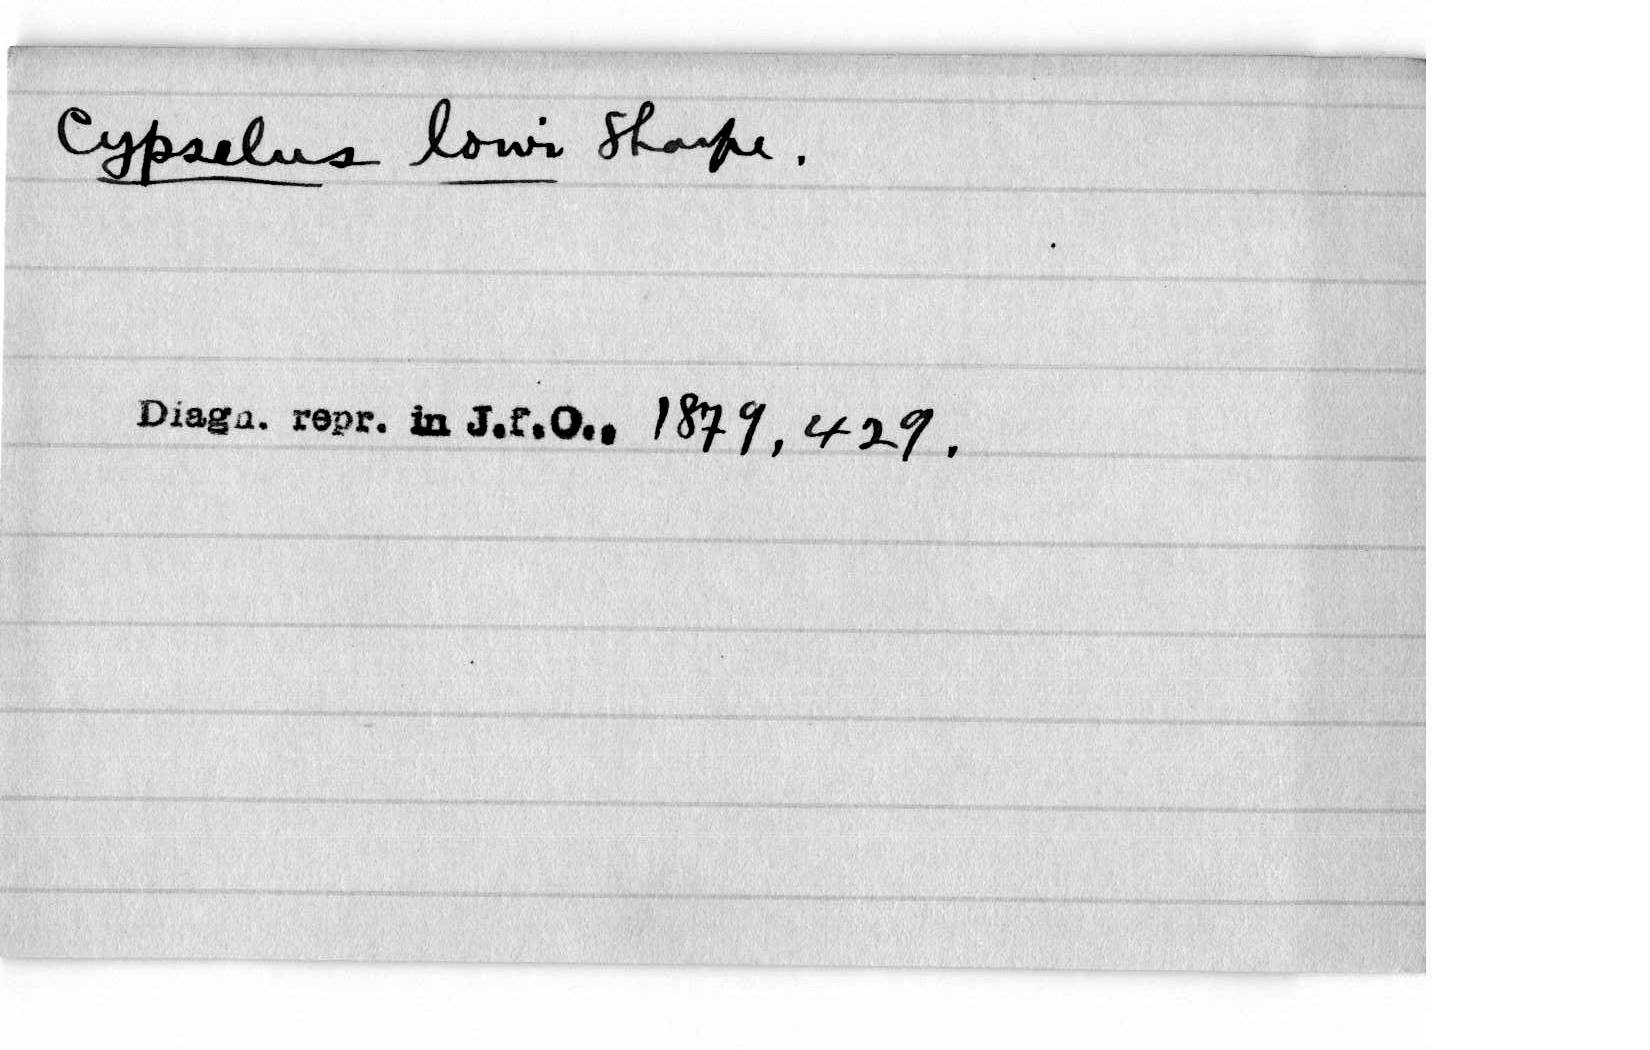 Cypselus lowi Sharpe.
Diagn. repr. in J.f.O., 1879, 429.